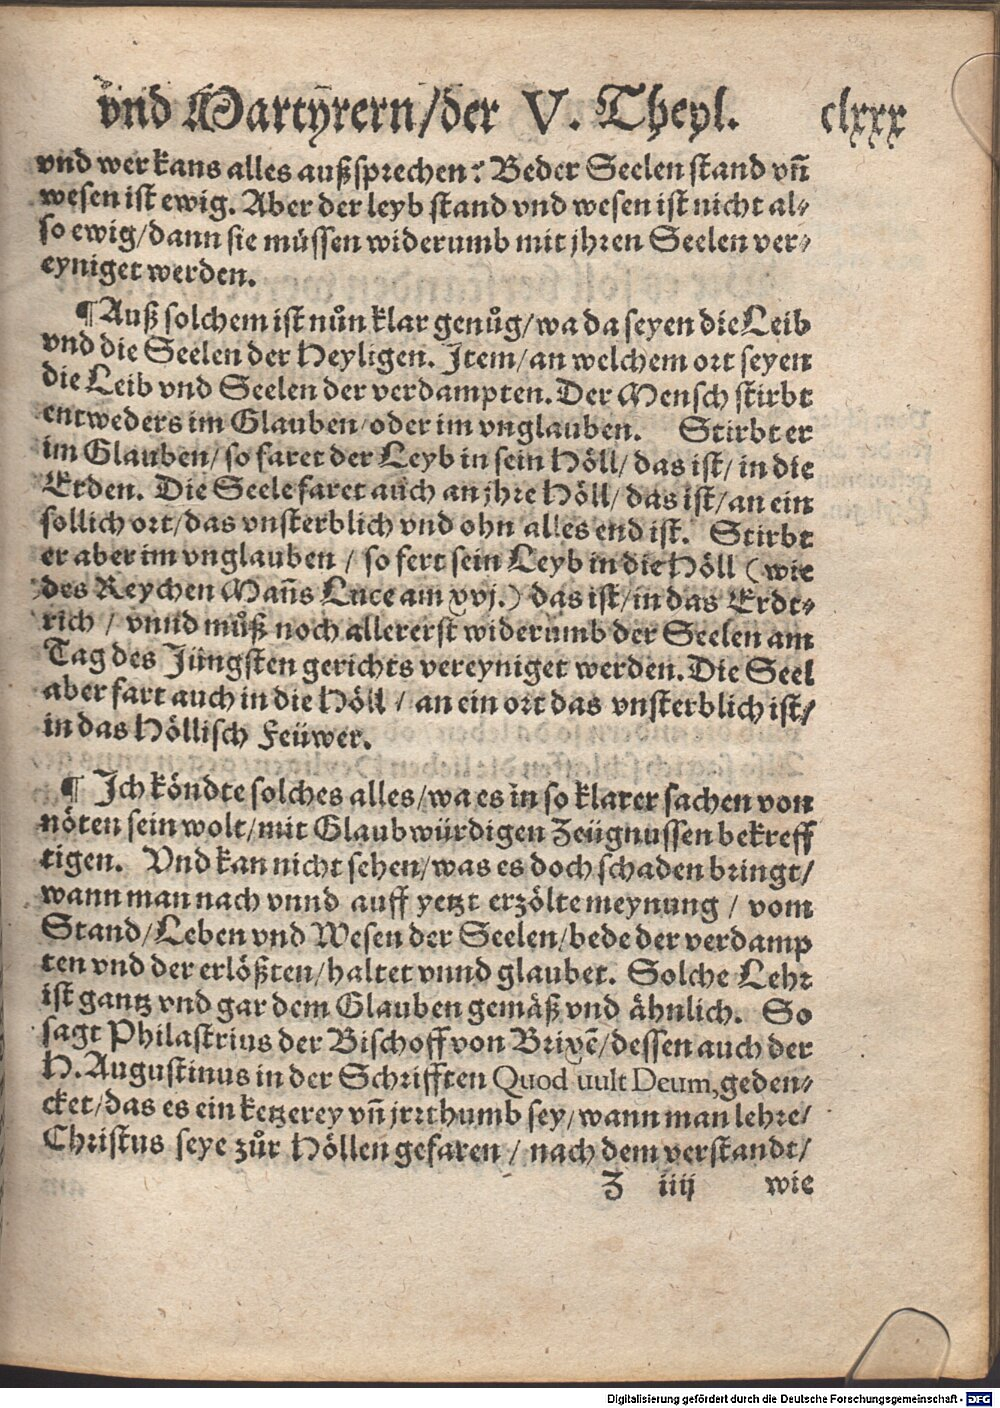 vnd Martyrern/der V. Theyl. clxxx
vnd wer kans alles außsprechen? Beder Seelen stand vñ
wesen ist ewig. Aber der leyb stand vnd wesen ist nicht al⸗
so ewig/dann sie müssen widerumb mit jhren Seelen ver⸗
eyniget werden.
¶Auß solchem ist nůn klar genůg/wa da seyen die Leib
vnd die Seelen der Heyligen. Item/an welchem ort seyen
die Leib vnd Seelen der verdampten. Der Mensch stirbt
entweders im Glauben/oder im vnglauben. Stirbt er
im Glauben/so faret der Leyb in sein Höll/das ist/in die
Erden. Die Seele faret auch an jhre Höll/das ist/an ein
sollich ort/das vnsterblich vnd ohn alles end ist. Stirbt
er aber im vnglauben/so fert sein Leyb in die Höll (wie
des Reychen Mañs Luce am xvj.) das ist/in das Erdt⸗
rich/vnnd můß noch allererst widerumb der Seelen am
Tag des Jüngsten gerichts vereyniget werden. Die Seel
aber fart auch in die Höll/an ein ort das vnsterblich ist/
in das Höllisch Feüwer.
¶ Ich köndte solches alles/wa es in so klarer sachen von
nöten sein wolt/mit Glaubwürdigen Zeügnussen bekreff
tigen. Vnd kan nicht sehen/was es doch schaden bringt/
wann man nach vnnd auff yetzt erzölte meynung/vom
Stand/Leben vnd Wesen der Seelen/bede der verdamp
ten vnd der erlößten/haltet vnnd glaubet. Solche Lehr
ist gantz vnd gar dem Glauben gemäß vnd ähnlich. So
sagt Philastrius der Bischoff von Brixẽ/dessen auch der
H. Augustinus in der Schrifften Quod uult Deum, geden⸗
cket/das es ein ketzerey vñ jrrthumb sey/wann man lehre/
Christus seye zůr Höllen gefaren/nach dem verstandt/
Z iiij wie
Digitalisierung gefördert durch die Deutsche Forschungsgemeinschaft - DFG